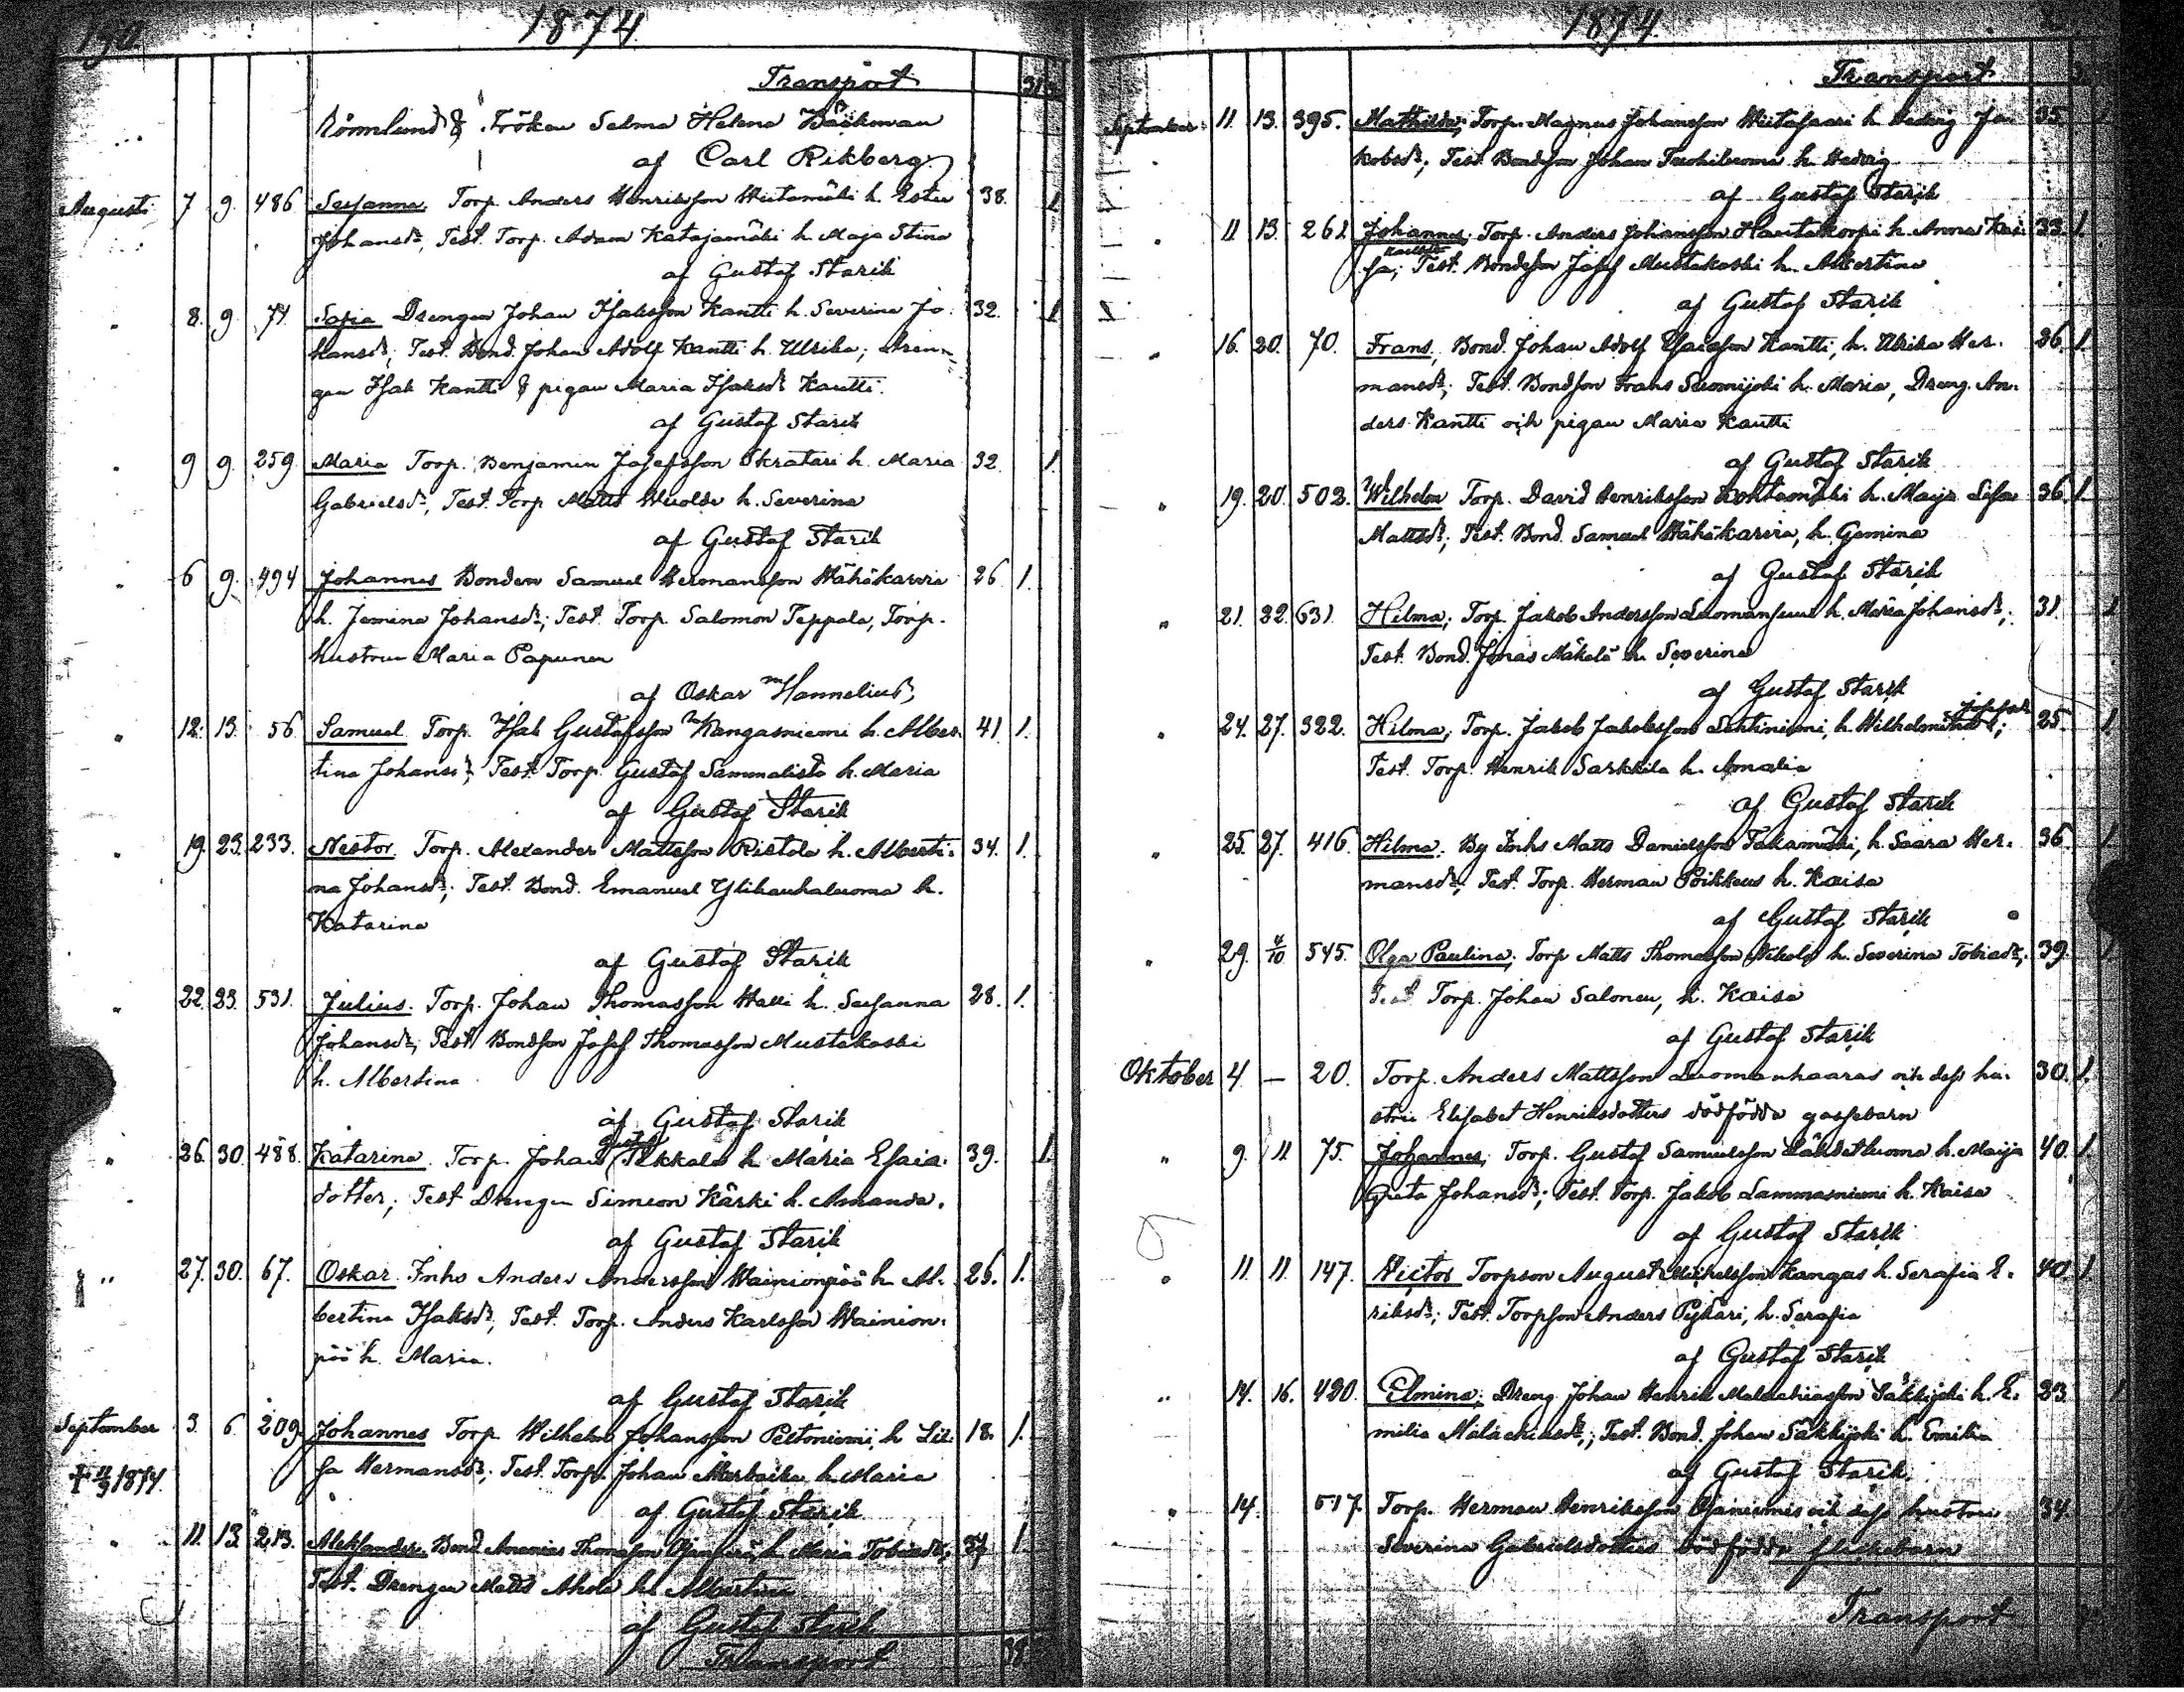 190.
1874
Transport 31
Rönnlund & Fröken Selma Helena Bäckman
af Carl Rikberg.
Augusti 7 9. 486 Susanna Torp. Anders Henriksson h. Ester 38. 1
Johansdr, Test. Torp. Adam Katajamäki h. Maja Stina
af Gustaf Starik
" 8. 9. 74 Sofia Drengen Johan Isaksson Kantti h. Severina Jo- 32. 1
hansdr; Test. Bond. Johan Adolf Kantti h. Ulrika; Dren-
gen Isak Kantti & pigan Maria Isaksdr Kantti.
af Gustaf Starik
" 9 9. 259 Maria Torp. Benjamin Josefsson Skratari h. Maria 32. 1.
Gabrielsdr, Test. Torp Matts h. Severina
af Gustaf Starik
" 6 9. 494 Johannes Bonden Samuel Hermansson Wähäkarvia 26 1.
h. Jemina Johansdr; Test. Torp. Salomon Teppala, Torp.
hustrun Maria Papunen
af Oskar Hannelius
" 12. 13. 56 Samuel Torp. Isak Gustafsson Kangasniemi h. Alber- 41 1.
tina Johansdr, Test. Torp. Gustaf Sammalisto h. Maria
af Gustaf Starik
" 19. 23. 233. Nestor. Torp. Alexander Mattsson Ristola h. Alberti- 34. 1.
na Johansdr; Test. Bond. Emanuel Ylihauhaluoma h.
Katarina
af Gustaf Starik
" 22. 23. 531. Julius. Torp. Johan Thomasson Halli h. Susanna 28. 1.
Johansdr; Test. Bondson Josef Thomasson Mustakoski
h. Albertina
af Gustaf Starik
Gustaf
" 26. 30. 488. Katarina. Torp. Johan Pekkala h Maria Esaia- 39. 1.
dotter; Test Drengen Simeon Kärki h. Amanda.
af Gustaf Starik
" 27. 30. 67. Oskar. Inhs Anders Andersson Wainionpää h. Al- 26. 1.
bertina Isaksdr, Test. Torp. Anders Karlsson Wainion-
pää h. Maria.
af Gustaf Starik
September 3. 6. 209. Johannes Torp Wilhelm Johansson Peltoniemi, h Lii- 18. 1.
+ 11/9 1874. sa Hermansdr; Test. Torp. Johan h. Maria
af Gustaf Starik
" 11. 13. 213. Aleksander. Bond Ananias Thomasson h Maria Tobiasdr; 34 1.
Test. Drengen Matts Ahola h. Albertina
af Gustaf Starik
Transport 38
1874
Transport
September 11. 13. 395. Mathilda; Torp. Magnus Johansson h Hedvig Ja- 35
kobsdr; Test. Bondson Johan h. Hedvig
af Gustaf Starik
" 11 13. 261. Johannes; Torp. Anders Johansson Hautakorpi h. Anna Kai- 33. 1.
sa; Test. Bondson Josef Mustakoski h. Albertina
af Gustaf Starik
" 16. 20. 70. Frans, Bond. Johan Adolf Esaiasson Kantti, h. Ulrika Her- 36. 1.
mansdr; Test. Bondson Frans Suomijoki h. Maria, Dreng. An-
ders Kantti och pigan Maria Kantti
af Gustaf Starik
" 19. 20. 502. Wilhelm Torp. David Henriksson h. Maija Lisa 36. 1.
Mattsdr; Test. Bond. Samuel Wähäkarvia, h. Gemina
af Gustaf Starik
" 21. 22. 631. Hilma; Torp. Jakob Andersson Luomansuu h. Maria Johansdr; 31. 1
Test. Bond. Jonas Mäkelä h. Severina
af Gustaf Starik
" 24. 27. 322. Hilma; Torp. Jakob Jakobsson Lehtiniemi, h. Wilhelmina 25. 1
Test. Torp. Henrik Sarkkila h. Amalia
af Gustaf Starik
" 25. 27. 416. Hilma. By Inhs Matts Danielsson Takamäki, h. Saara Her- 36. 1
mansdr; Test. Torp. Herman Poikkeus h. Kaisa
af Gustaf Starik
" 29. 4/10 545. Olga Paulina; Torp Matts Thomasson Nikola h. Severina Tobiasdr; 39. 1
Test Torp. Johan Salonen, h. Kaisa
af Gustaf Starik
Oktober 4. — 20. Torp. Anders Mattsson Luomanhaaras och dess hu- 30. 1.
strus Elisabet Henriksdotters dödfödda gossebarn
" 9. 11 75. Johannes; Torp. Gustaf Samuelsson Lähdetluoma h. Maija 40. 1.
Greta Johansdr; Test. Torp. Jakob Lammasniemi h. Kaisa
af Gustaf Starik
" 11. 11. 147. Victor Torpson August Mikelsson Kangas h. Serafia E- 40 1
riksdr; Test. Torpson Anders Pyhäri, h. Serafia
af Gustaf Starik
" 14. 16. 420. Elmina; Dreng Johan Henrik Malakiasson Säkkijoki h. E- 23. 1
milia Malachiasdr; Test. Bond. Johan Säkkijoki h. Emilia
af Gustaf Starik.
" 14. 517. Torp. Herman Henriksson Ojaniemis och dess hustru 34.
Severina Gabrielsdotters dödfödda flickebarn
Transport